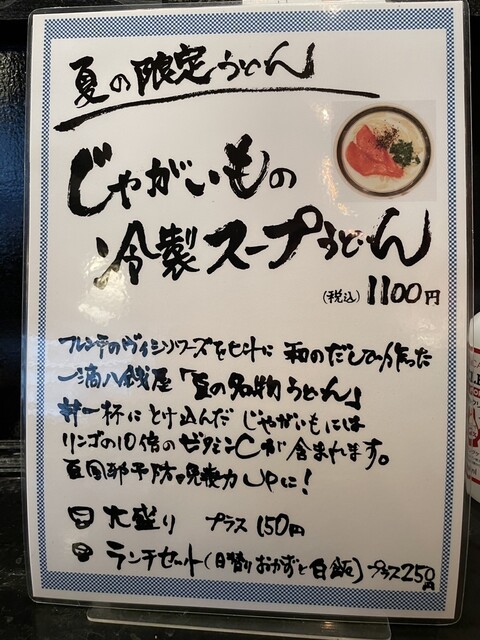 夏の限定うどん
じゃがいもの
冷製スープうどん
(税込) 1100円
フレンチのヴィシソワーズをヒントに 和のだしで作った
一滴八銭屋「夏の名物うどん」
丼一杯にとけ込んだ じゃがいもには
リンゴの10倍のビタミンCが含まれます。
夏風邪予防・免疫力UPに!
大盛り プラス150円
ランチセット(日替りおかずと白飯)プラス250円